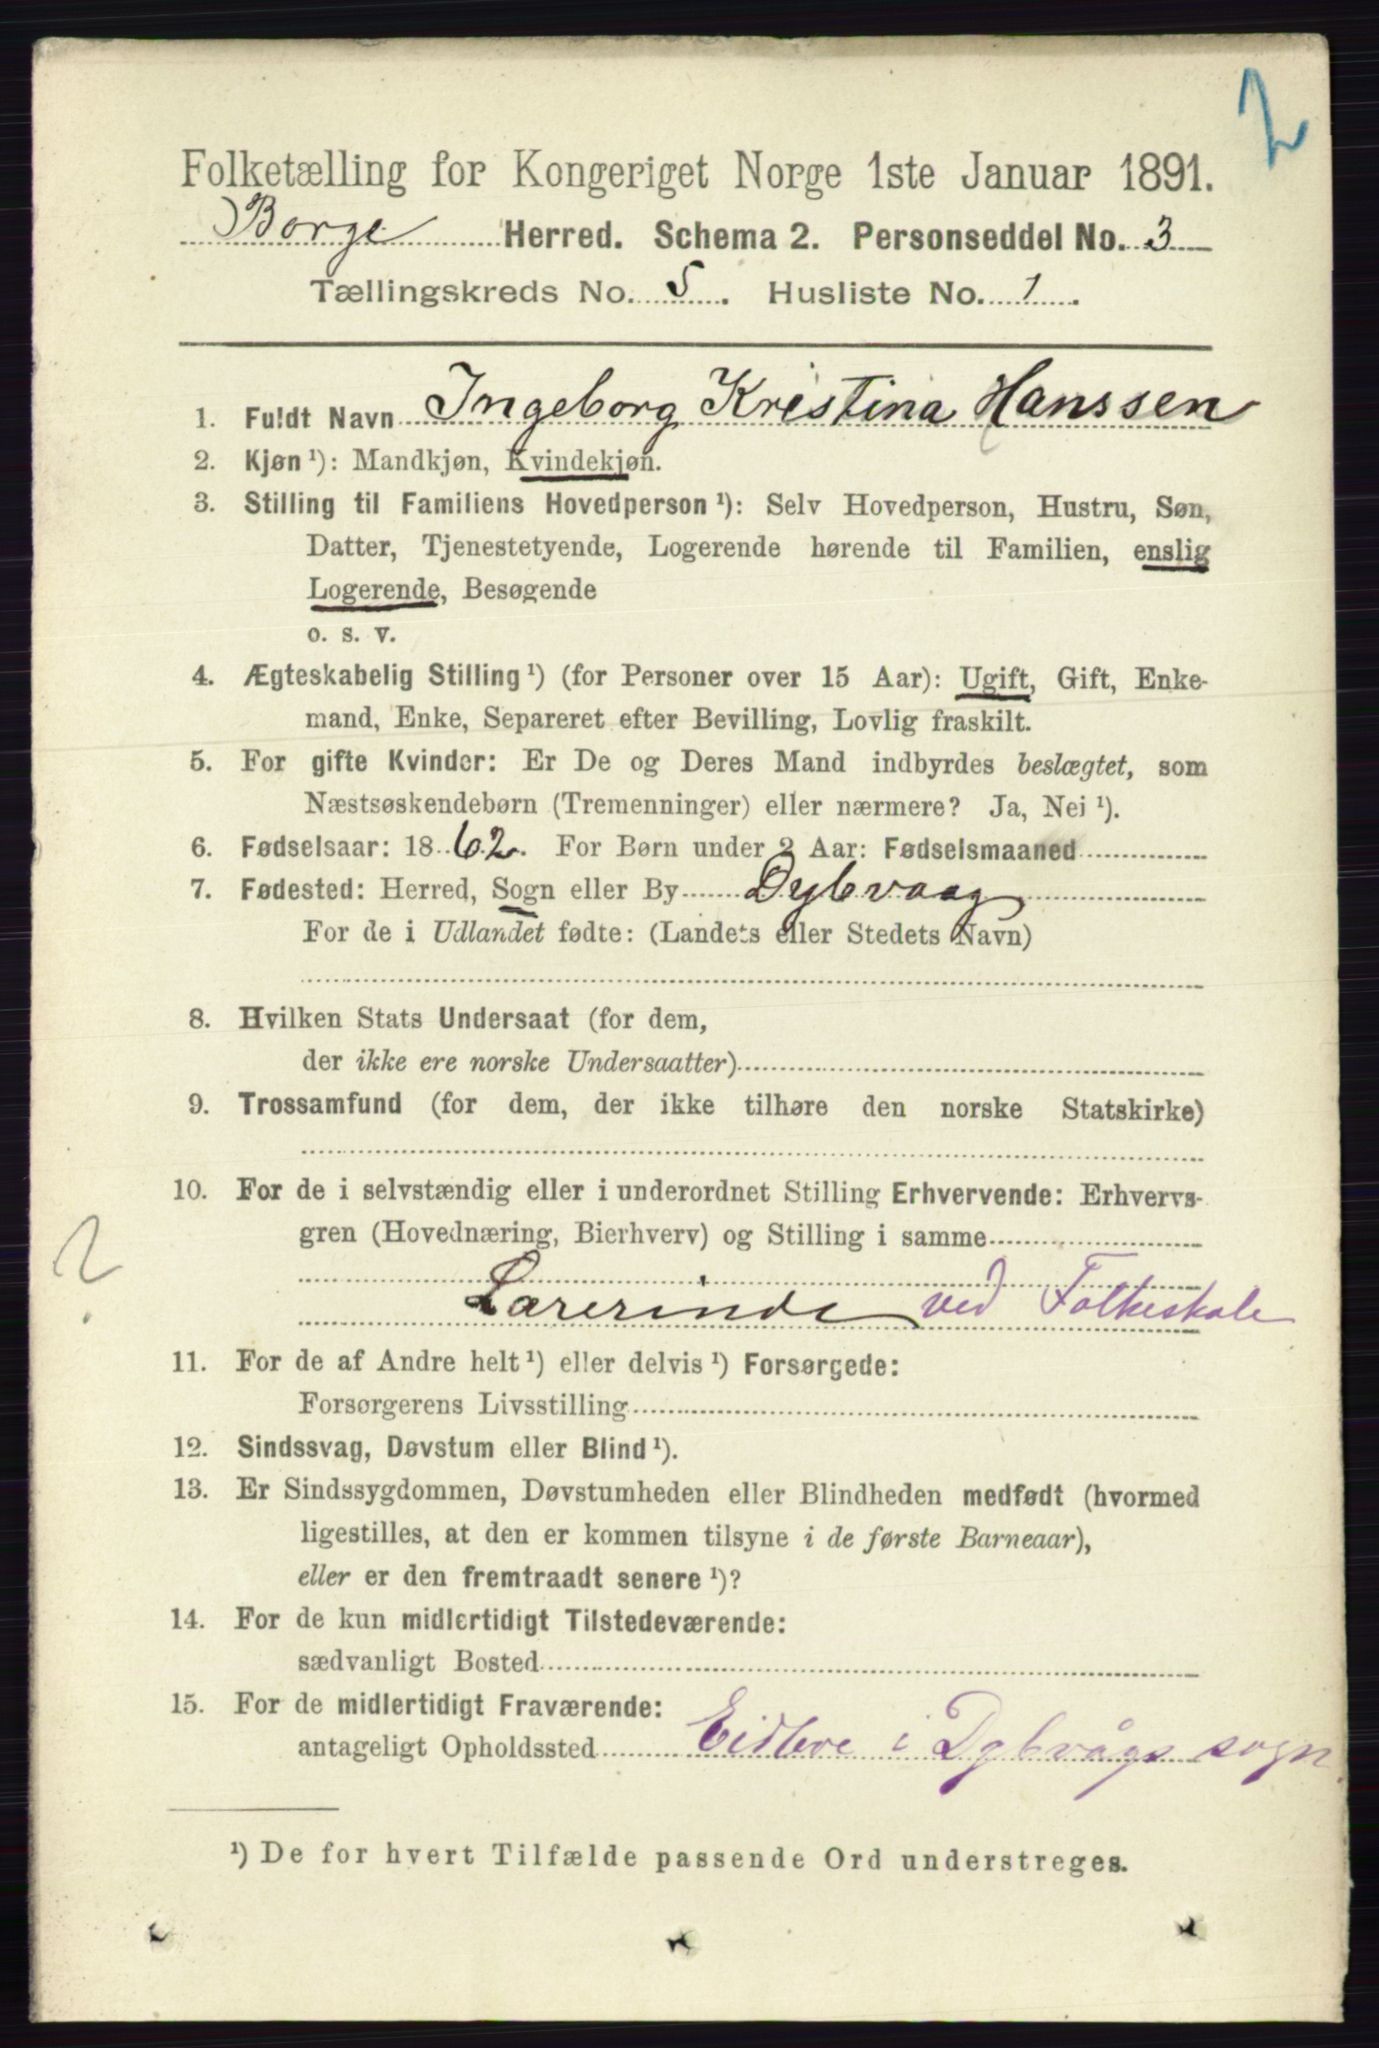 2
Folketælling for Kongeriget Norge 1ste Januar 1891.
Borge Herred. Schema 2. Personseddel No. 3
Tællingskreds No. 5. Husliste No. 1.
1. Fuldt Navn Ingeborg Kristina Hanssen
2. Kjøn ¹): Mandkjøn, Kvindekjøn.
3. Stilling til Familiens Hovedperson ¹): Selv Hovedperson, Hustru, Søn,
Datter, Tjenestetyende, Logerende hørende til Familien, enslig
Logerende, Besøgende
o. s. v.
4. Ægteskabelig Stilling ¹) (for Personer over 15 Aar): Ugift, Gift, Enke-
mand, Enke, Separeret efter Bevilling, Lovlig fraskilt.
5. For gifte Kvinder: Er De og Deres Mand indbyrdes beslægtet, som
Næstsøskendebørn (Tremenninger) eller nærmere? Ja, Nei ¹).
6. Fødselsaar: 1862. For Børn under 2 Aar: Fødselsmaaned
7. Fødested: Herred, Sogn eller By Dybvaag
For de i Udlandet fødte: (Landets eller Stedets Navn)
8. Hvilken Stats Undersaat (for dem,
der ikke ere norske Undersaatter)
9. Trossamfund (for dem, der ikke tilhøre den norske Statskirke)
10. For de i selvstændig eller i underordnet Stilling Erhvervende: Erhvervs-
gren (Hovednæring, Bierhverv) og Stilling i samme
2
Lærerinde ved Folkeskole
11. For de af Andre helt ¹) eller delvis ¹) Forsørgede:
Forsørgerens Livsstilling
12. Sindssvag, Døvstum eller Blind ¹).
13. Er Sindssygdommen, Døvstumheden eller Blindheden medfødt (hvormed
ligestilles, at den er kommen tilsyne i de første Barneaar),
eller er den fremtraadt senere ¹)?
14. For de kun midlertidigt Tilstedeværende:
sædvanligt Bosted
15. For de midlertidigt Fraværende:
antageligt Opholdssted i Dybvågs sogn.
¹) De for hvert Tilfælde passende Ord understreges.